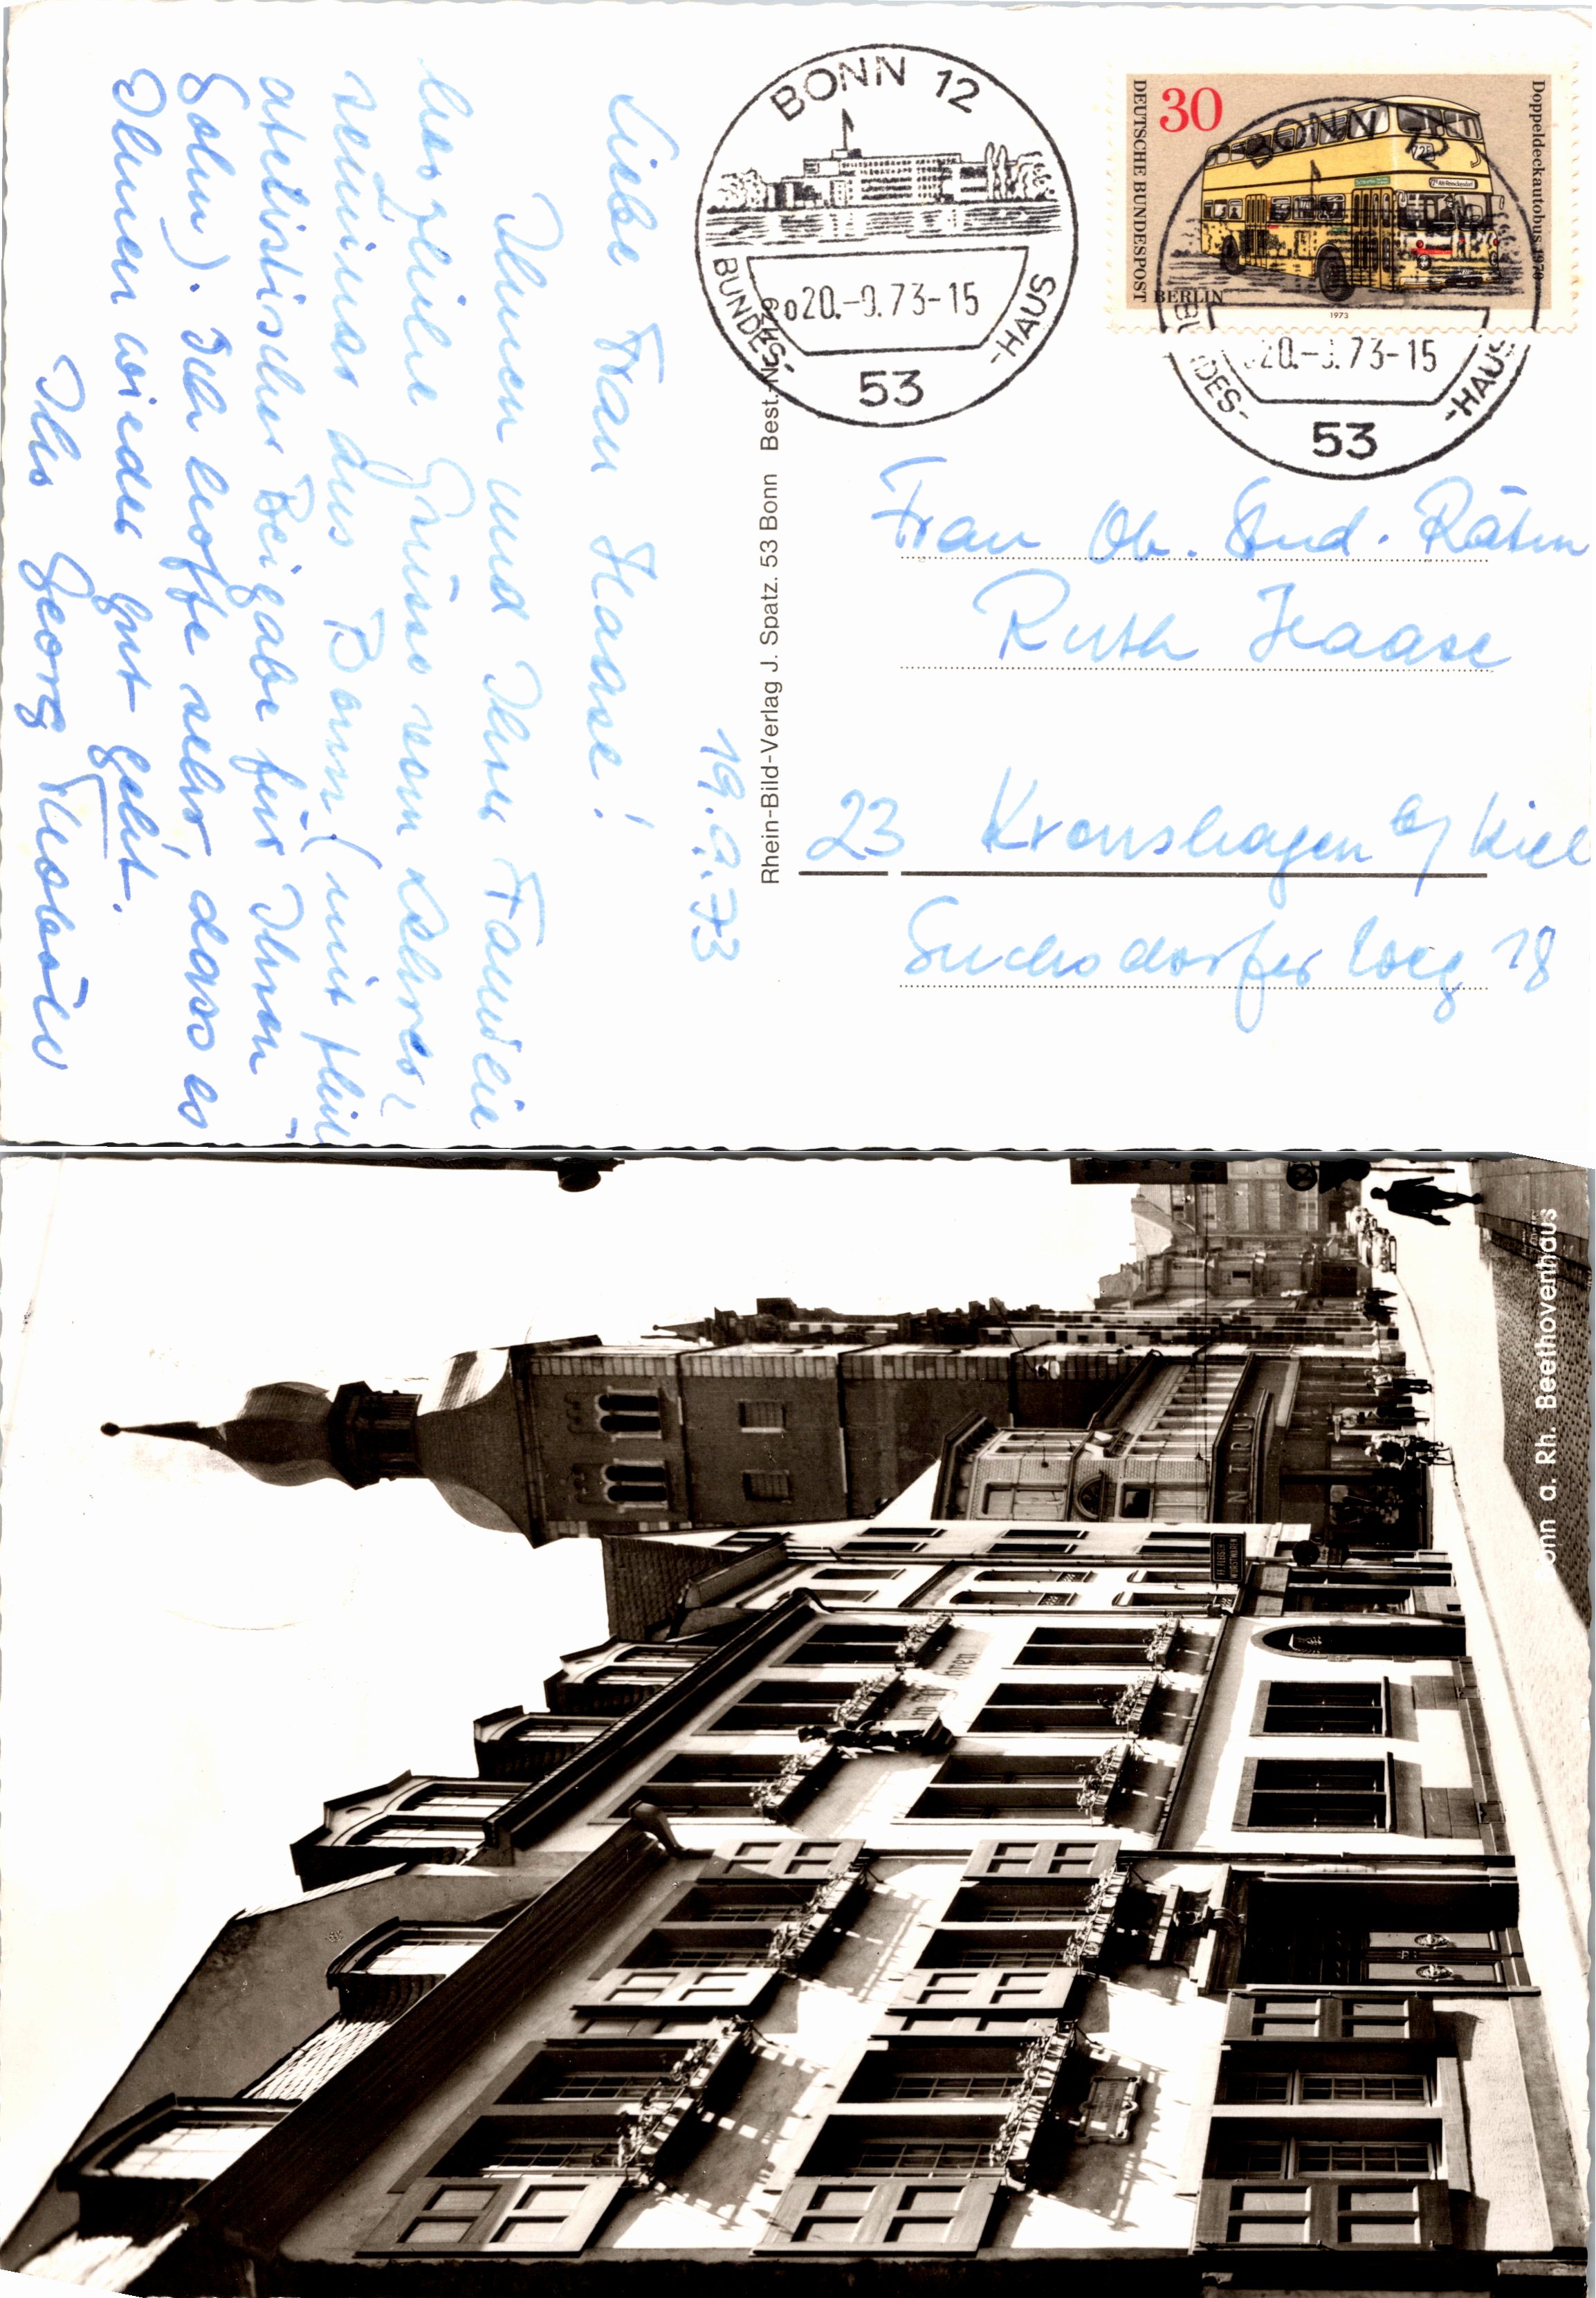 19.9.73
Liebe Frau Haase!
Ihnen und Ihrer Familie
herzliche Grüsse von
seiner aus Bonn (mit
atelistischer Beigabe für Ihren
Sohn). Ich hoffe sehr, dass es
Ihnen wieder gut geht.
Ihr Georg
Rhein-Bild-Verlag J. Spatz. 53 Bonn Best.
BONN 12
20.-9.73-15
BUNDES-
-HAUS
53
30
DEUTSCHE BUNDESPOST BERLIN
Doppeldeckautobus 1970
1973
BONN 12
20.-9.73-15
BUNDES-
-HAUS
53
Frau Ob. Stud. Rätin
Ruth Haase
23 Kronshagen b/ Kiel
Suchsdorfer Weg 18
onn a. Rh. Beethovenhaus